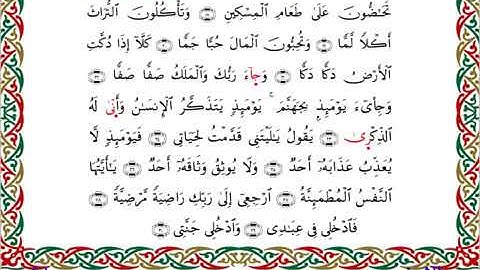 تَحَٰٓضُّونَ عَلَىٰ طَعَامِ ٱلْمِسْكِينِ ۝ وَتَأْكُلُونَ ٱلتُّرَاثَ
أَكْلًا لَّمًّا ۝ وَتُحِبُّونَ ٱلْمَالَ حُبًّا جَمًّا ۝ كَلَّآ إِذَا دُكَّتِ
ٱلْأَرْضُ دَكًّا دَكًّا ۝ وَجَآءَ رَبُّكَ وَٱلْمَلَكُ صَفًّا صَفًّا ۝
وَجِا۟ىٓءَ يَوْمَئِذٍۭ بِجَهَنَّمَ ۚ يَوْمَئِذٍ يَتَذَكَّرُ ٱلْإِنسَٰنُ وَأَنَّىٰ لَهُ
ٱلذِّكْرَىٰ ۝ يَقُولُ يَٰلَيْتَنِى قَدَّمْتُ لِحَيَاتِى ۝ فَيَوْمَئِذٍ لَّا
يُعَذِّبُ عَذَابَهُۥٓ أَحَدٌ ۝ وَلَا يُوثِقُ وَثَاقَهُۥٓ أَحَدٌ ۝ يَٰٓأَيَّتُهَا
ٱلنَّفْسُ ٱلْمُطْمَئِنَّةُ ۝ ٱرْجِعِىٓ إِلَىٰ رَبِّكِ رَاضِيَةً مَّرْضِيَّةً ۝
فَٱدْخُلِى فِى عِبَٰدِى ۝ وَٱدْخُلِى جَنَّتِى ۝